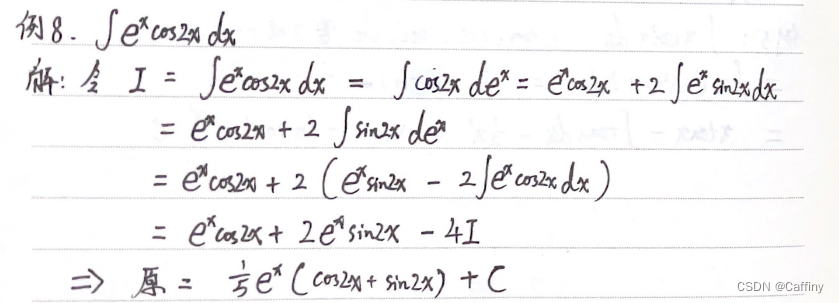 例8. ∫eˣcos2x dx
解: 令 I = ∫eˣcos2x dx = ∫cos2x deˣ = eˣcos2x + 2∫eˣ sin2x dx
= eˣcos2x + 2 ∫sin2x deˣ
= eˣcos2x + 2 (eˣsin2x - 2∫eˣcos2x dx)
= eˣcos2x + 2eˣsin2x - 4I
⇒ 原 = 1/5 eˣ (cos2x + sin2x) + C
CSDN @Caffiny